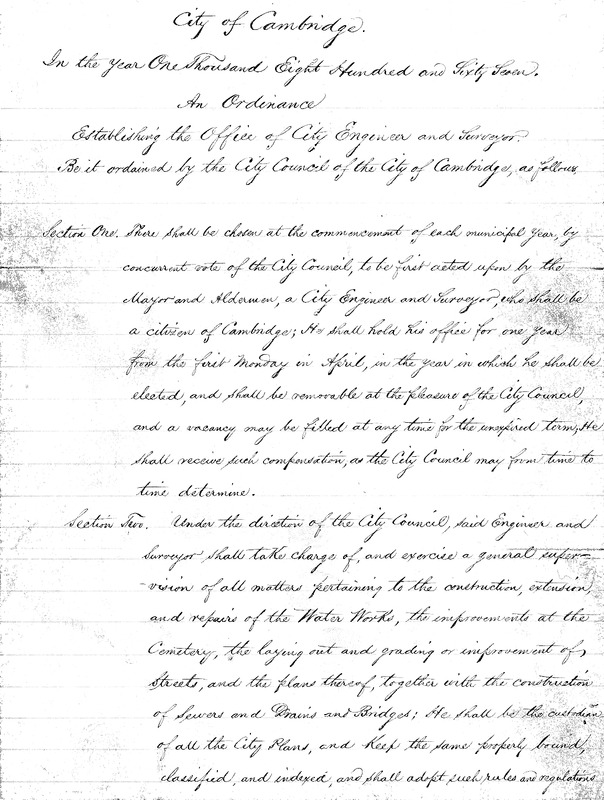 City of Cambridge.
In the Year One Thousand Eight Hundred and Sixty Seven.
An Ordinance
Establishing the Office of City Engineer and Surveyor.
Be it ordained by the City Council of the City of Cambridge, as follows.
Section One. There shall be chosen at the commencement of each municipal year, by
concurrent vote of the City Council, to be first acted upon by the
Mayor and Aldermen, a City Engineer and Surveyor, who shall be
a citizen of Cambridge; He shall hold his office for one year
from the first Monday in April, in the year in which he shall be
elected, and shall be removable at the pleasure of the City Council,
and a vacancy may be filled at any time for the unexpired term; He
shall receive such compensation, as the City Council may from time to
time determine.
Section Two. Under the direction of the City Council, said Engineer and
Surveyor shall take charge of, and exercise a general super-
-vision of all matters pertaining to the construction, extension,
and repairs of the Water Works, the improvements at the
Cemetery, the laying out and grading or improvement of
Streets, and the plans thereof, together with the construction
of Sewers and Drains and Bridges; He shall be the custodian
of all the City Plans, and keep the same properly bound,
classified, and indexed, and shall adopt such rules and regulations